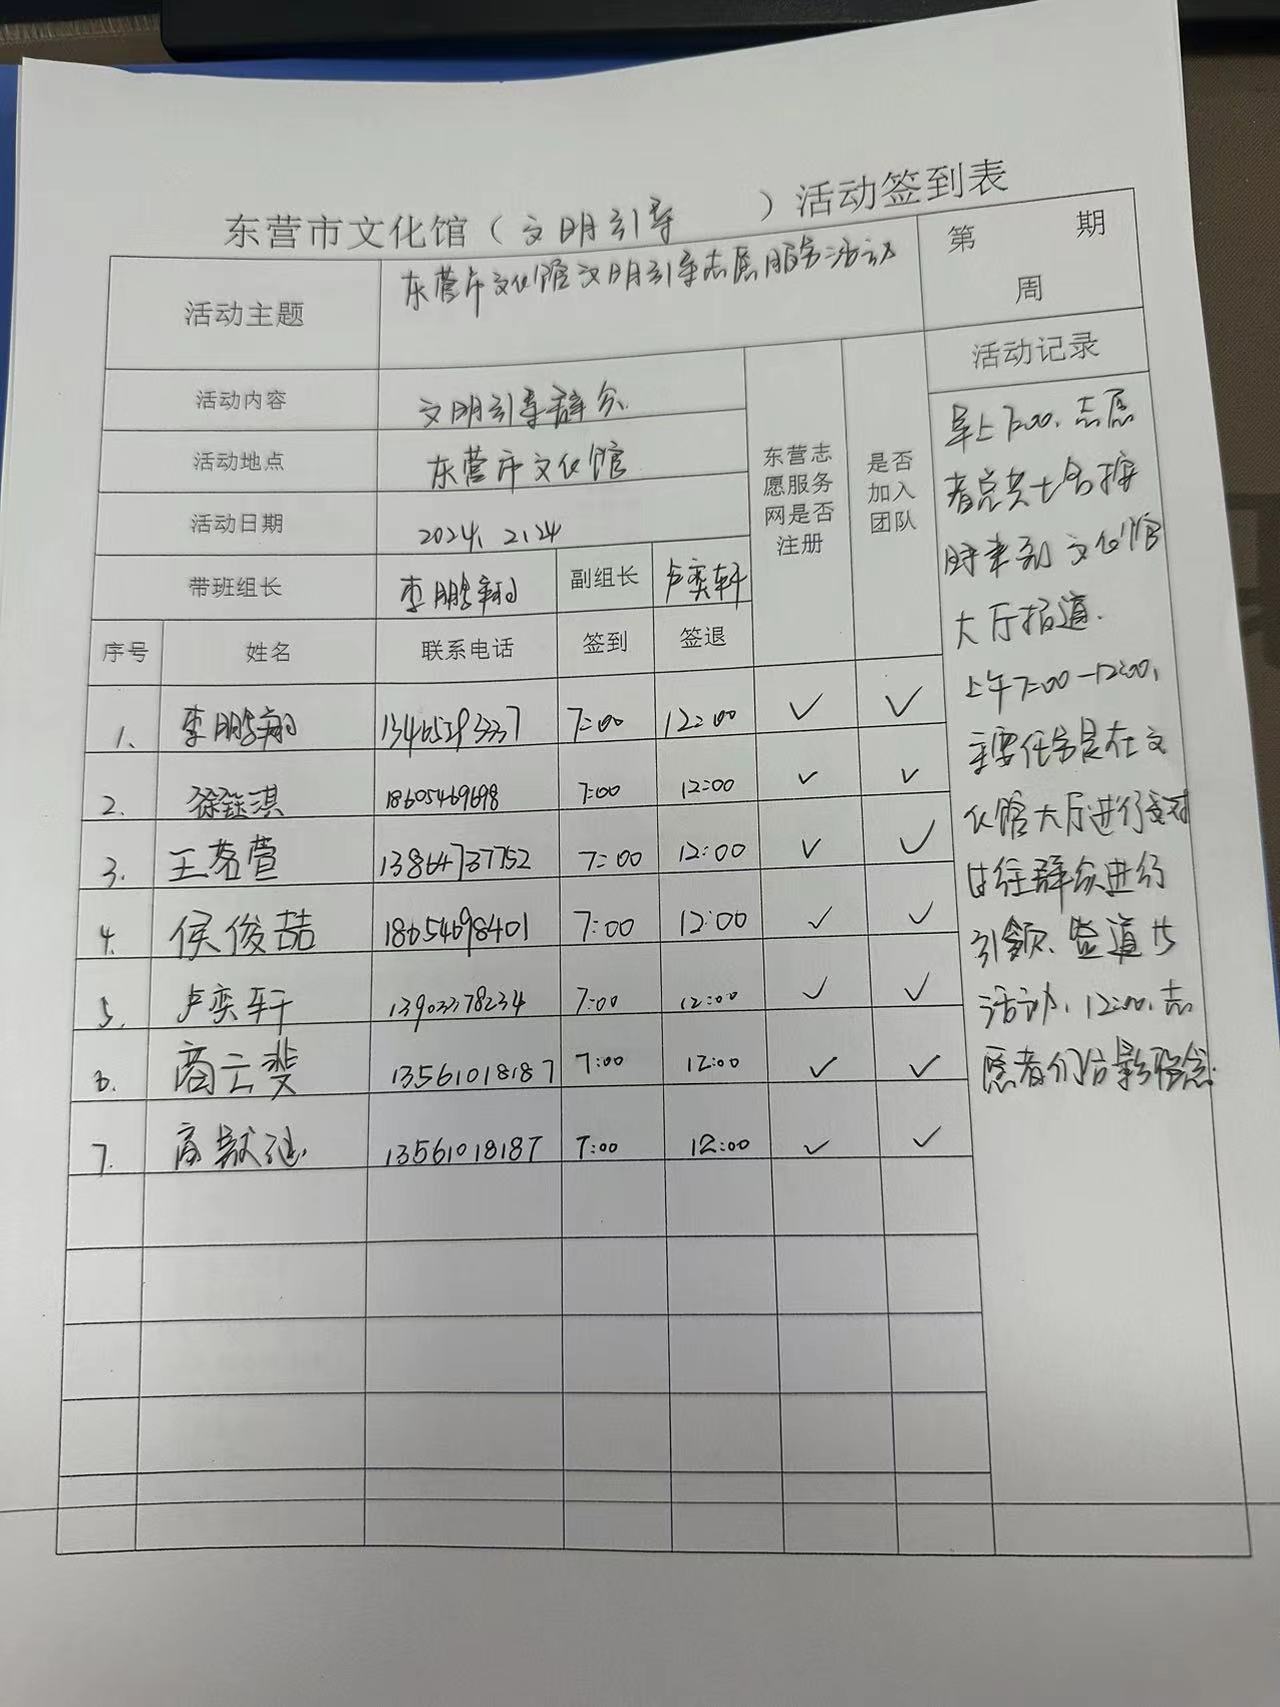 东营市文化馆（文明引导）活动签到表
活动主题 东营市文化馆文明引导志愿服务活动 第 期
周
活动内容 文明引导群众
活动地点 东营市文化馆
活动日期 2024.2.24
带班组长 李鹏翔 副组长 卢奕轩
东营志
愿服务
网是否
注册
是否
加入
团队
序号 姓名 联系电话 签到 签退
1. 李鹏翔 13465293337 7:00 12:00 ✓ ✓
2. 徐钰淇 18605469698 7:00 12:00 ✓ ✓
3. 王茗萱 13864737752 7:00 12:00 ✓ ✓
4. 侯俊喆 18654698401 7:00 12:00 ✓ ✓
5. 卢奕轩 13903378234 7:00 12:00 ✓ ✓
6. 商云斐 13561018187 7:00 12:00 ✓ ✓
7. 13561018187 7:00 12:00 ✓ ✓
活动记录
早上7:00,志愿
者总共七名按
时来到文化馆
大厅报道.
上午7:00-12:00,
主要任务是在文
化馆大厅进行对
往群众进行
引领、
活动,12:00,志
愿者们合影留念.